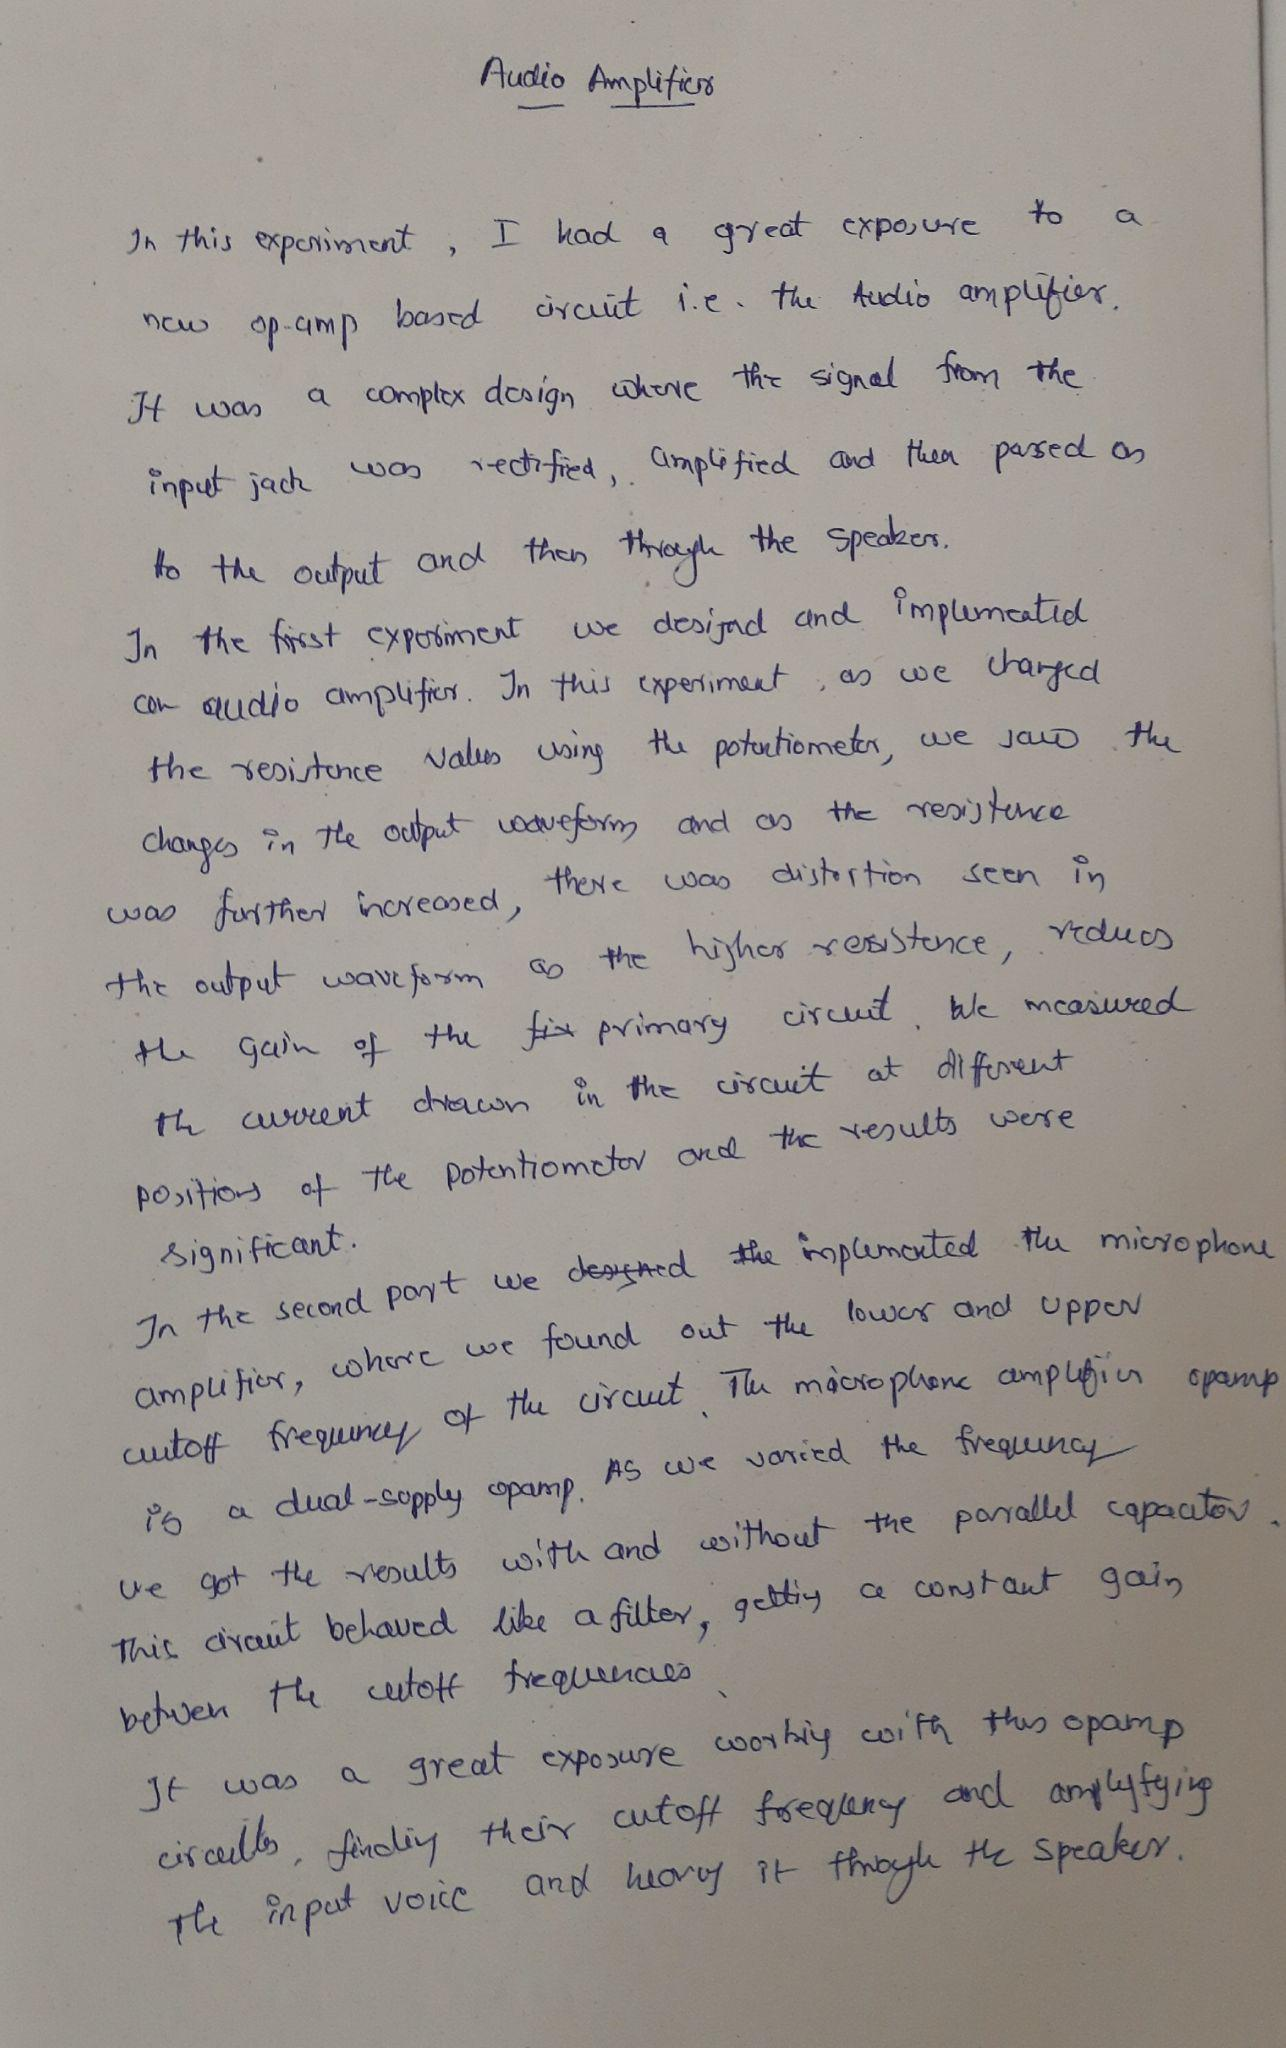 Audio Amplifier
In this experiment, I had a great exposure to a
new op-amp based circuit i.e. the Audio amplifier.
It was a complex design where the signal from the
input jack was rectified, amplified and then passed on
to the output and then through the speaker.
In the first experiment we desijnd and implemented
an audio amplifier. In this experiment, as we changed
the resistence values using the potentiometer, we saw the
changes in the output waveform and as the resistence
was further increased, there was distortion seen in
the output waveform as the higher resistence, reduces
the gain of the fix primary circuit. We measured
the current drawn in the circuit at different
positions of the potentiometer and the results were
significant.
In the second part we designed the implemented the microphone
amplifier, where we found out the lower and upper
cutoff frequency of the circuit. The microphone amplifier opamp
is a dual-supply opamp. As we varied the frequency
we got the results with and without the parallel capacitor.
This circuit behaved like a filter, getting a constant gain
between the cutoff frequencies.
It was a great exposure working with this opamp
circuits, finding their cutoff frequency and amplyfying
the input voice and hearing it through the speaker.